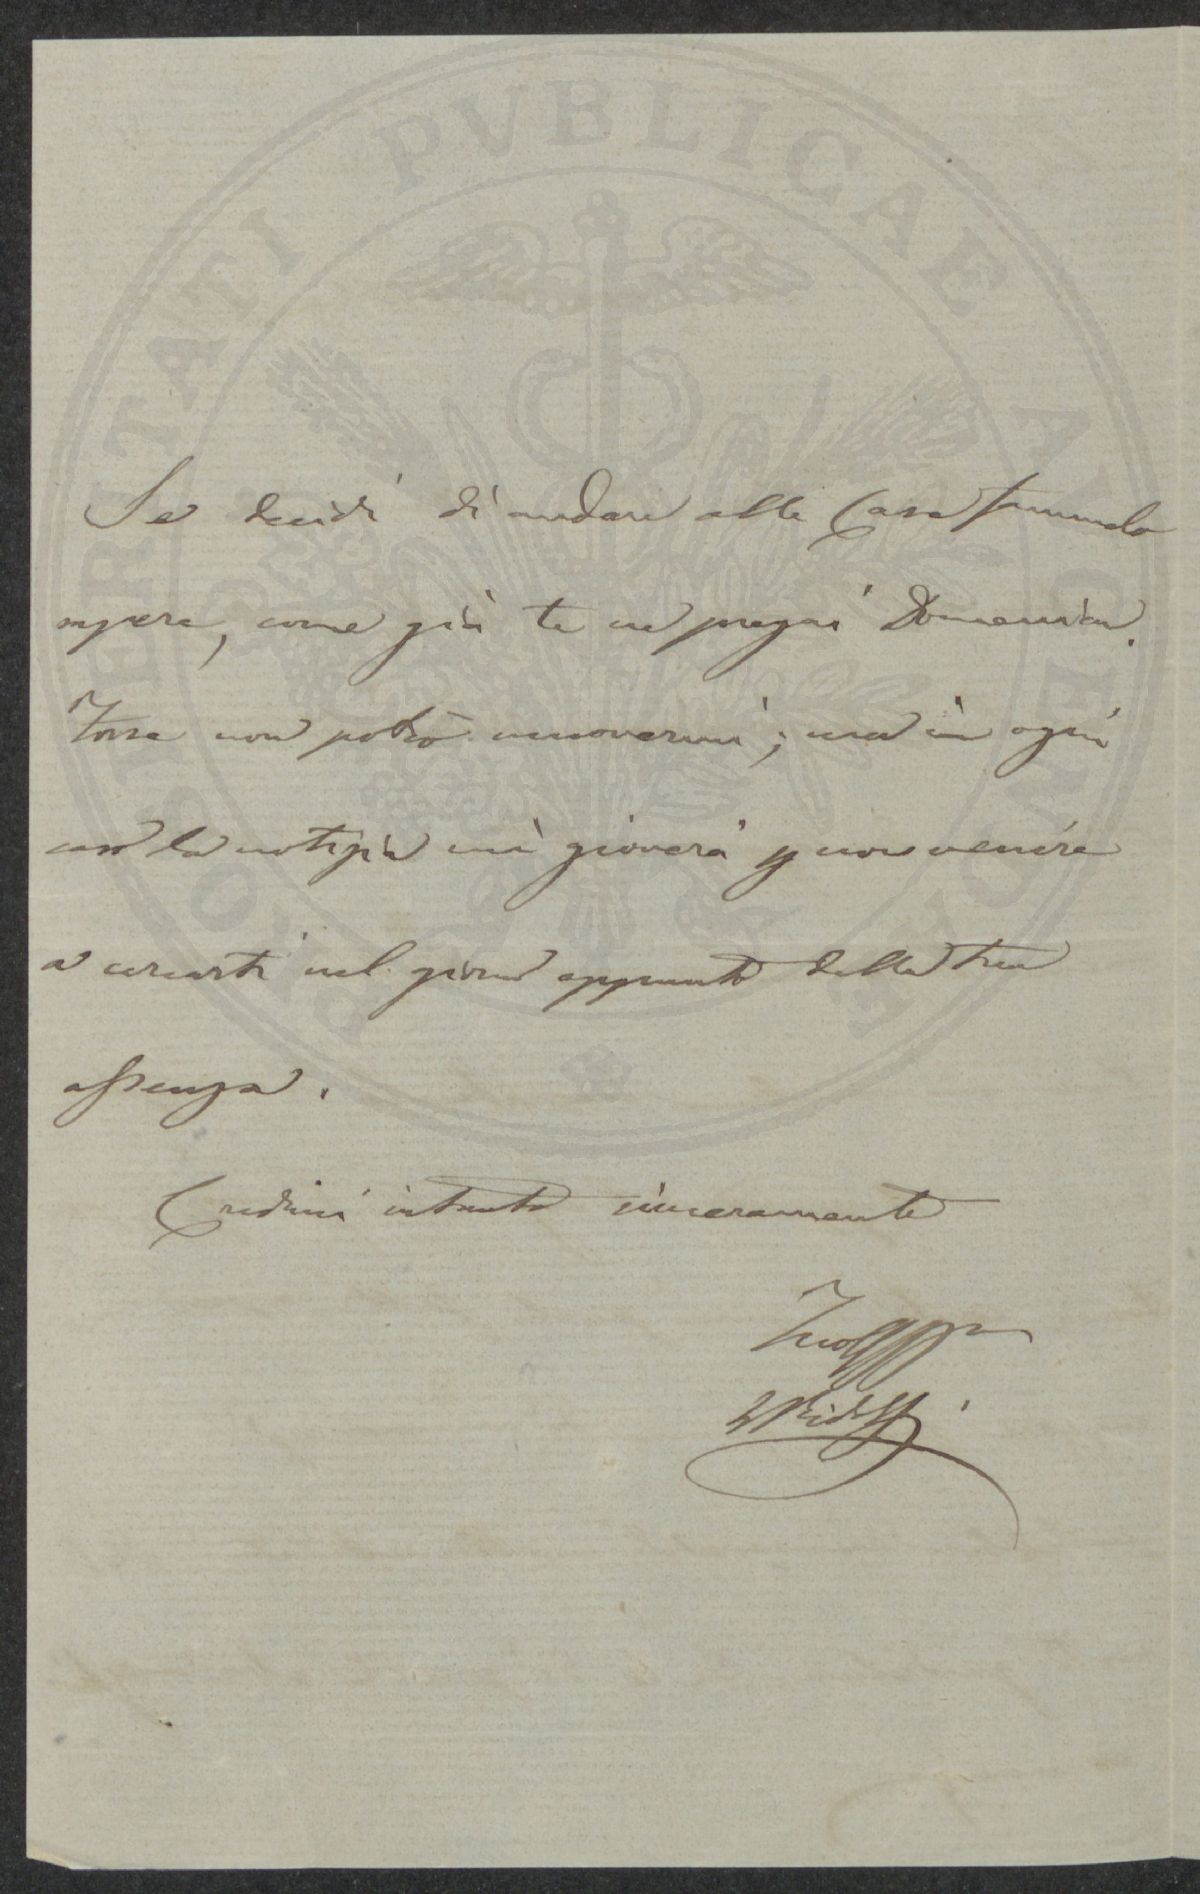 PROSPERITATI PVBLICAE AVGENDAE
Se decidi di andare alla Casa fammelo
sapere, come già te ne pregai Domenica.
Forse non potrò muovermi; ma in ogni
caso la notizia mi gioverà p non venire
a cercarti nel giorno appunto della tua
assenza.
Credimi intanto sinceramente